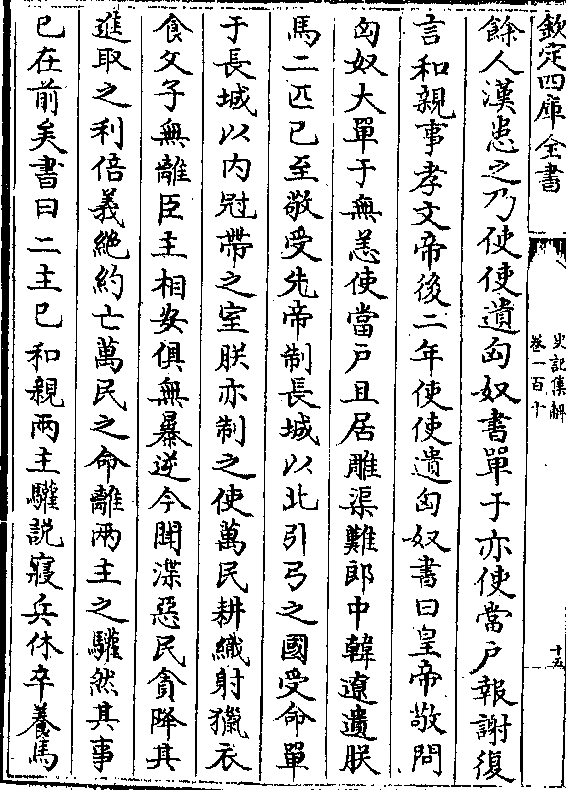 欽定四庫全書
史記集解
卷一百十
十五
餘人漢患之乃使使遺匈奴書單于亦使當户報謝復
言和親事孝文帝後二年使使遺匈奴書曰皇帝敬問
匈奴大單于無恙使當户且居雕渠難郎中韓遼遺朕
馬二匹已至敬受先帝制長城以北引弓之國受命單
于長城以内冠帶之室朕亦制之使萬民耕織射獵衣
食父子無離臣主相安俱無暴逆今聞渫惡民貪降其
進取之利倍義絶約亡萬民之命離兩主之驩然其事
已在前矣書曰二主已和親兩主驩説寢兵休卒養馬